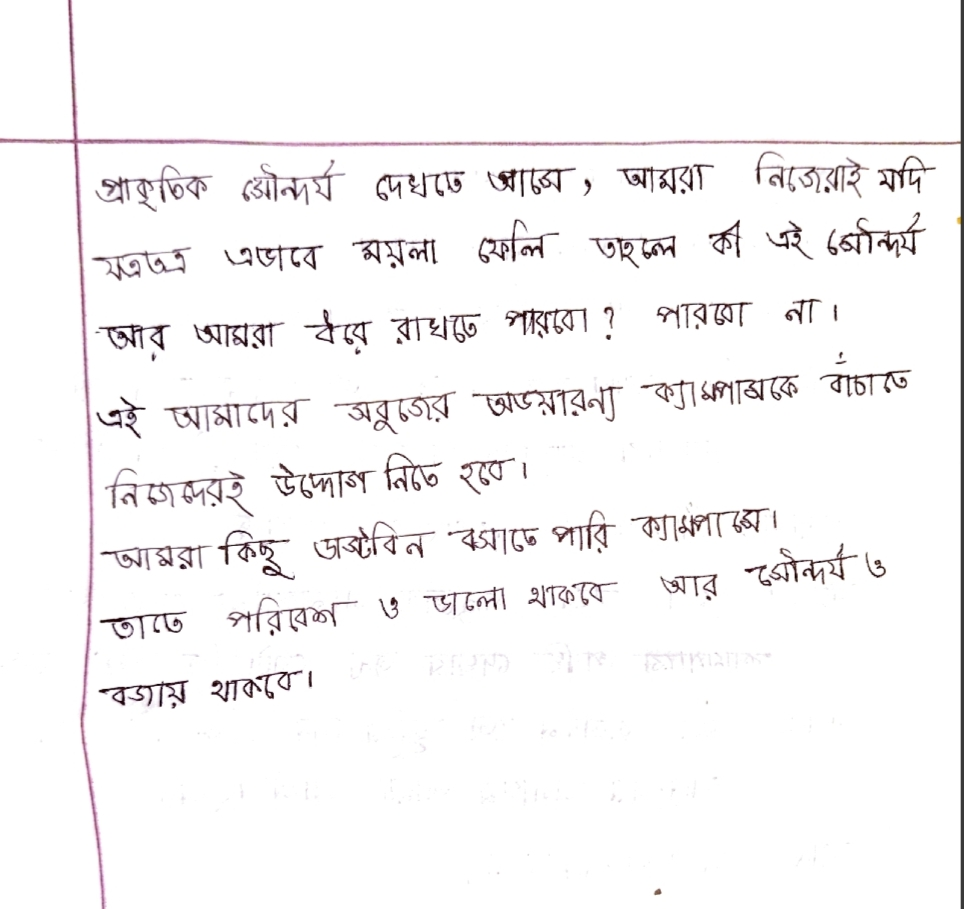 প্রাকৃতিক সৌন্দর্য দেখতে আসে, আমরা নিজেরাই যদি
যত্রতত্র এভাবে ময়লা ফেলি তহলে কী এই সৌন্দর্য
আর আমরা ধরে রাখতে পারবো? পারবো না।
এই আমাদের সবুজের অভয়ারন্য ক্যাম্পাসকে বাঁচাতে
নিজেদেরই উদ্দোগ নিতে হবে।
আমরা কিছু ডাস্টবিন বসাতে পারি ক্যাম্পাসে।
তাতে পরিবেশ ও ভালো থাকবে আর সৌন্দর্য ও
বজায় থাকবে।